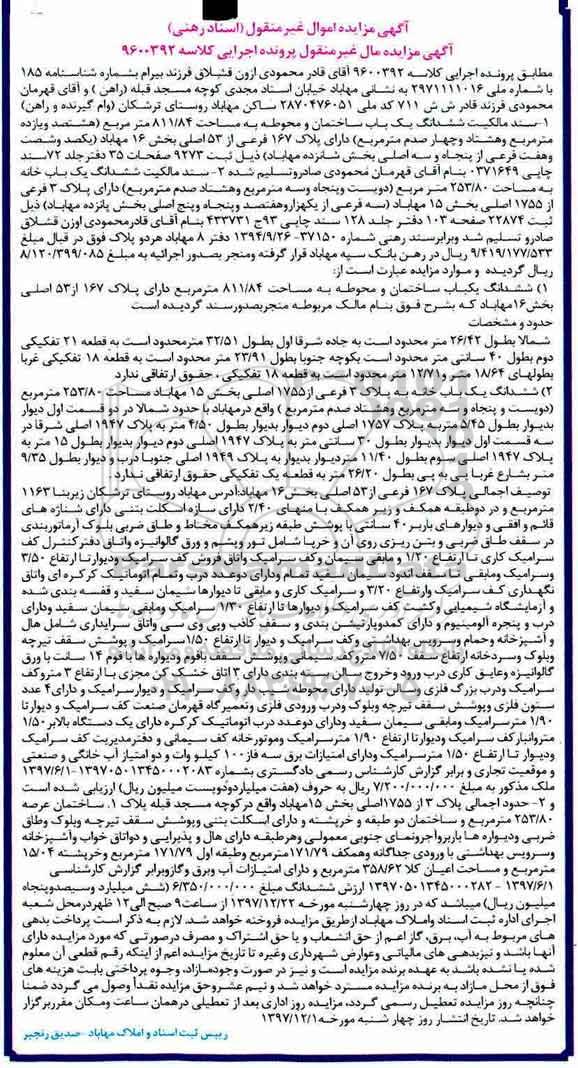 آگهی مزایده اموال غیر منقول (اسناد رهنی)
آگهی مزایده مال غیر منقول پرونده اجرایی کلاسه ۹۶۰۰۳۹۲
مطابق پرونده اجرایی کلاسه ۹۶۰۰۳۹۲ آقای قادر محمودی ازون قشلاق فرزند بیرام بشماره شناسنامه ۱۸۵
با شماره ملی ۲۹۷۱۱۱۱۰۱۶ به نشانی مهاباد خیابان استاد مجدی کوچه مسجد قبله (راهن) و آقای قهرمان
محمودی فرزند قادر ش ش ۷۱۱ کد ملی ۲۸۷۰۴۷۶۰۵۱ ساکن مهاباد روستای ترشکان (وام گیرنده و راهن)
۱-سند مالکیت ششدانگ یک باب ساختمان و محوطه به مساحت ۸۱۱/۸۴ متر مربع (هشتصد ویازده
مترمربع وهشتاد وچهار صدم مترمربع) دارای پلاک ۱۶۷ فرعی از ۵۳ اصلی بخش ۱۶ مهاباد (یکصد وشصت
وهفت فرعی از پنجاه و سه اصلی بخش شانزده مهاباد) ذیل ثبت ۹۲۷۳ صفحات ۳۵ دفتر جلد ۷۲ سند
چاپی ۰۳۷۱۶۴۹ بنام آقای قهرمان محمودی صادروتسلیم شده ۲- سند مالکیت ششدانگ یک باب خانه
به مساحت ۲۵۳/۸۰ متر مربع (دویست وپنجاه وسه مترمربع وهشتاد صدم مترمربع) دارای پلاک ۳ فرعی
از ۱۷۵۵ اصلی بخش ۱۵ مهاباد (سه فرعی از یکهزاروهفتصد وپنجاه وپنج اصلی بخش پانزده مهاباد) ذیل
ثبت ۲۲۸۷۴ صفحه ۱۰۳ دفتر جلد ۱۲۸ سند چاپی ۹۳ج ۴۳۳۷۳۱ بنام آقای قادرمحمودی اوزن قشلاق
صادرو تسلیم شد وبرابرسند رهنی شماره ۳۷۱۵۰-۱۳۹۴/۹/۲۶ دفتر ۸ مهاباد هردو پلاک فوق در قبال مبلغ
۹/۴۱۹/۱۷۷/۵۳۳ ریال در رهن بانک سپه مهاباد قرار گرفته ومنجر بصدور اجرائیه به مبلغ ۸/۱۲۰/۳۹۹/۰۸۵
ریال گردیده و موارد مزایده عبارت است از:
۱) ششدانگ یکباب ساختمان و محوطه به مساحت ۸۱۱/۸۴ مترمربع دارای پلاک ۱۶۷ از ۵۳ اصلی
بخش۱۶مهاباد که بشرح فوق بنام مالک مربوطه منجربصدورسند گردیده است
حدود و مشخصات
شمالا بطول ۲۶/۴۲ متر محدود است به جاده شرقا اول بطول ۳۲/۵۱ مترمحدود است به قطعه ۲۱ تفکیکی
دوم بطول ۴۰ سانتی متر محدود است بکوچه جنوبا بطول ۲۳/۹۱ متر محدود است به قطعه ۱۸ تفکیکی غربا
بطولهای ۱۸/۶۴ متر و ۱۲/۷۱ متر محدود است به قطعه ۱۸ تفکیکی ، حقوق ارتفاقی ندارد
۲) ششدانگ یک باب خانه به پلاک ۳ فرعی از۱۷۵۵ اصلی بخش ۱۵ مهاباد مساحت ۲۵۳/۸۰ مترمربع
(دویست و پنجاه و سه مترمربع وهشتاد صدم مترمربع) واقع درمهاباد با حدود شمالا در دو قسمت اول دیوار
بدیوار بطول ۵/۴۵ متربه پلاک ۱۷۵۷ اصلی دوم دیوار بدیوار بطول ۴/۵۰ متر به پلاک ۱۹۴۷ اصلی شرقا در
سه قسمت اول دیوار بدیوار بطول ۳۰ سانتی متر به پلاک ۱۹۴۷ اصلی دوم دیوار بدیوار بطول ۱۵ متر به
پلاک ۱۹۴۷ اصلی سوم بطول ۱۱/۴۰ متردیوار بدیوار به پلاک ۱۹۴۹ اصلی جنوبا درب و دیوار بطول ۹/۳۵
متر بشارع غربا پی به پی بطول ۲۶/۲۰ متر به قطعه یک تفکیکی حقوق ارتفاقی ندارد .
توصیف اجمالی پلاک ۱۶۷ فرعی از۵۳ اصلی بخش ۱۶ مهاباد:آدرس مهاباد روستای ترشکان زیربنا ۱۱۶۳
مترمربع و در دوطبقه همکف و زیر همکف با منهای ۲/۴۰ دارای سازه اسکلت بتنی دارای شناژه های
قائم و افقی و دیوارهای باربر ۴۰ سانتی با پوشش طبقه زیرهمکف مخاط و طاق ضربی بلوک آرماتوربندی
در سقف طاق ضربی و بتن ریزی روی آن و خرپا شامل تور ویشم و ورق گالوانیزه واتاق دفترکنترل کف
سرامیک کاری تا ارتفاع ۱/۲۰ و مابقی سیمان وکف سرامیک واتاق فروش کف سرامیک ودیوارتا ارتفاع ۳/۵۰
وسرامیک ومابقی تا سقف اندود سیمان سفید تمام ودارای دوعدد درب وتمام اتوماتیک کرکره ای واتاق
نگهداری کف سرامیک وارتفاع ۳/۲۰ و سرامیک کاری و مابقی تا دیوارها سیمان سفید و قفسه بندی شده
و آزمایشگاه شیمیایی وکشت کف سرامیک و دیوارها تا ارتفاع ۱/۳۰ سرامیک ومابقی سیمان سفید ودارای
درب و پنجره آلومینیوم و دارای کمدوپارتیشن بندی و سقف کاذب وپی وی سی واتاق سرایداری شامل هال
و آشپزخانه وحمام وسرویس بهداشتی وکف سرامیک و دیوار تا ارتفاع ۱/۵۰سرامیک و پوشش سقف تیرچه
وبلوک وسردخانه ارتفاع سقف ۷/۵۰ متروکف سیمانی وپوشش سقف بافوم ودیواره ها بافوم ۱۴ سانت با ورق
گالوانیزه وعایق کاری درب ورود وخروج سالن بسته بندی دارای ۳ اتاق خشک کن مجزی با ارتفاع ۳ متروکف
سرامیک ودرب بزرگ فلزی وسالن تولید دارای محوطه وکف سرامیک و دیوارسرامیک و دارای۴ عدد
ستون فلزی وپوشش سقف تیرچه وبلوک ودرب ورودی فلزی وتعمیرگاه قهرمان صنعت کف سرامیک و دیوارتا
۱/۹۰ مترسرامیک ومابقی سیمان سفید ودارای دوعدد درب اتوماتیک کرکره دارای یک دستگاه بالابر ۱/۵۰
متروانبارکف سرامیک ودیوارتا ارتفاع ۱/۹۰ مترسرامیک وموتورخانه کف سیمانی و دفترمدیریت کف سرامیک
ودیوار تا ارتفاع ۱/۵۰ مترسرامیک ودارای امتیازات برق سه فاز۱۰۰ کیلو وات و دو امتیاز آب خانگی و صنعتی
و موقعیت تجاری و برابر گزارش کارشناس رسمی دادگستری بشماره ۱۳۹۷۰۵۰۱۳۴۵۰۰۰۲۰۸۳-۱۳۹۷/۶/۱
ملک مذکور به مبلغ ۷/۲۰۰/۰۰۰/۰۰۰ ریال به حروف (هفت میلیاردودویست میلیون ریال) ارزیابی شده است
و ۲- حدود اجمالی پلاک ۳ از ۱۷۵۵اصلی بخش ۱۵مهاباد واقع درکوچه مسجد قبله پلاک ۱. ساختمان عرصه
۲۵۳/۸۰ مترمربع و ساختمان دو طبقه و خرپشته و دارای اسکلت بتنی وپوشش سقف تیرچه وبلوک وطاق
ضربی ودیواره ها باربروآجرونمای جنوبی معمولی وهرطبقه دارای هال و پذیرایی و دواتاق خواب وآشپزخانه
وسرویس بهداشتی با ورودی جداگانه وهمکف ۱۷۱/۷۹مترمربع وطبقه اول ۱۷۱/۷۹ مترمربع وخرپشته ۱۵/۰۴
مترمربع و مساحت اعیان کلا ۳۵۸/۶۲ مترمربع و دارای امتیازات آب وبرق وگازوبرابر گزارش کارشناسی
۱۳۹۷/۶/۱ - ۱۳۹۷۰۵۰۱۳۴۵۰۰۰۲۸۲ ارزش ششدانگ مبلغ ۶/۳۵۰/۰۰۰/۰۰۰ (شش میلیارد وسیصدوپنجاه
میلیون ریال) میباشد که در روز چهارشنبه مورخه ۱۳۹۷/۱۲/۲۲ از ساعت۹ صبح الی۱۲ ظهردرمحل شعبه
اجرای اداره ثبت اسناد واملاک مهاباد ازطریق مزایده فروخته خواهد شد. لازم به ذکر است پرداخت بدهی
های مربوط به آب، برق، گاز اعم از حق انشعاب و یا حق اشتراک و مصرف درصورتی که مورد مزایده دارای
آنها باشد و نیزبدهی های مالیاتی وعوارض شهرداری وغیره تا تاریخ مزایده اعم از اینکه رقم قطعی آن معلوم
شده یا نشده باشد به عهده برنده مزایده است و نیز در صورت وجودمازاد، وجوه پرداختی بابت هزینه های
فوق از محل مازاد به برنده مزایده مسترد خواهد شد و نیم عشروحق مزایده نقداً وصول می گردد ضمنا
چنانچه روز مزایده تعطیل رسمی گردد، مزایده روز اداری بعد از تعطیلی درهمان ساعت ومکان مقرربرگزار
خواهد شد. تاریخ انتشار روز چهار شنبه مورخه۱۳۹۷/۱۲/۱
رییس ثبت اسناد و املاک مهاباد -صدیق رنجبر